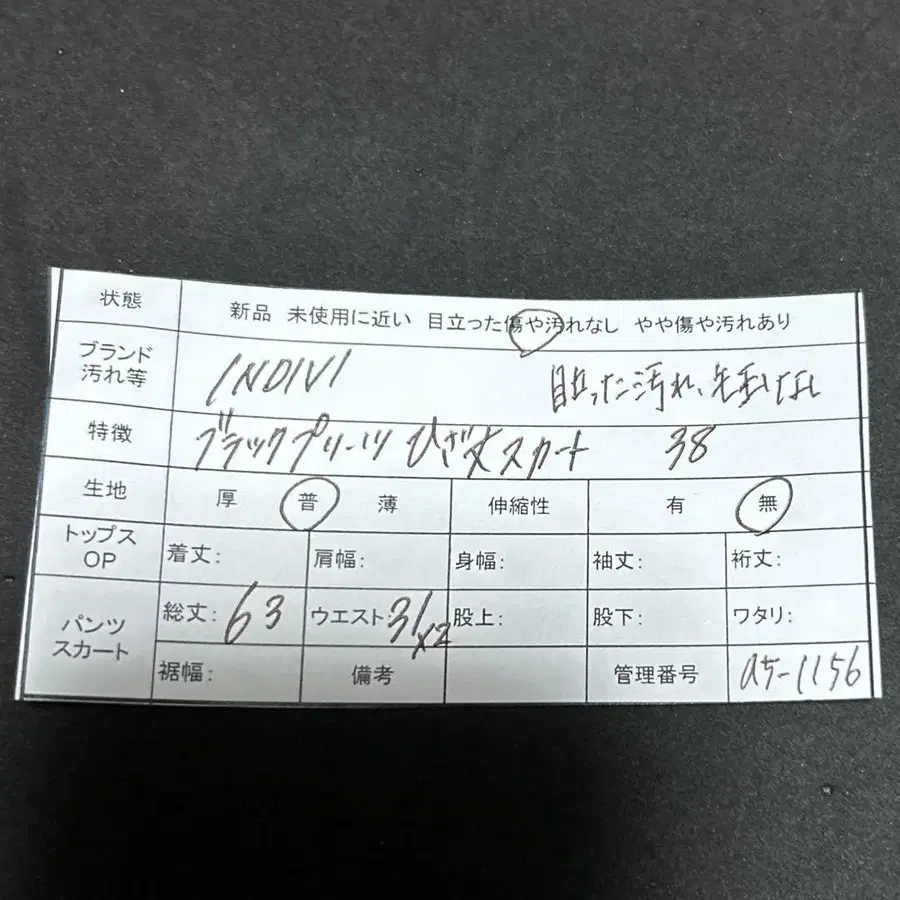 状態 新品 未使用に近い 目立った傷や汚れなし やや傷や汚れあり
ブランド
汚れ等 INDIVI 目立った汚れ、なし
特徴 ブラックプリーツ ひざ丈スカート 38
生地 厚 普 薄 伸縮性 有 無
トップス
OP 着丈: 肩幅: 身幅: 袖丈: 裄丈:
パンツ
スカート 総丈: 63 ウエスト: 31x2 股上: 股下: ワタリ:
裾幅: 備考 管理番号 a5-1156